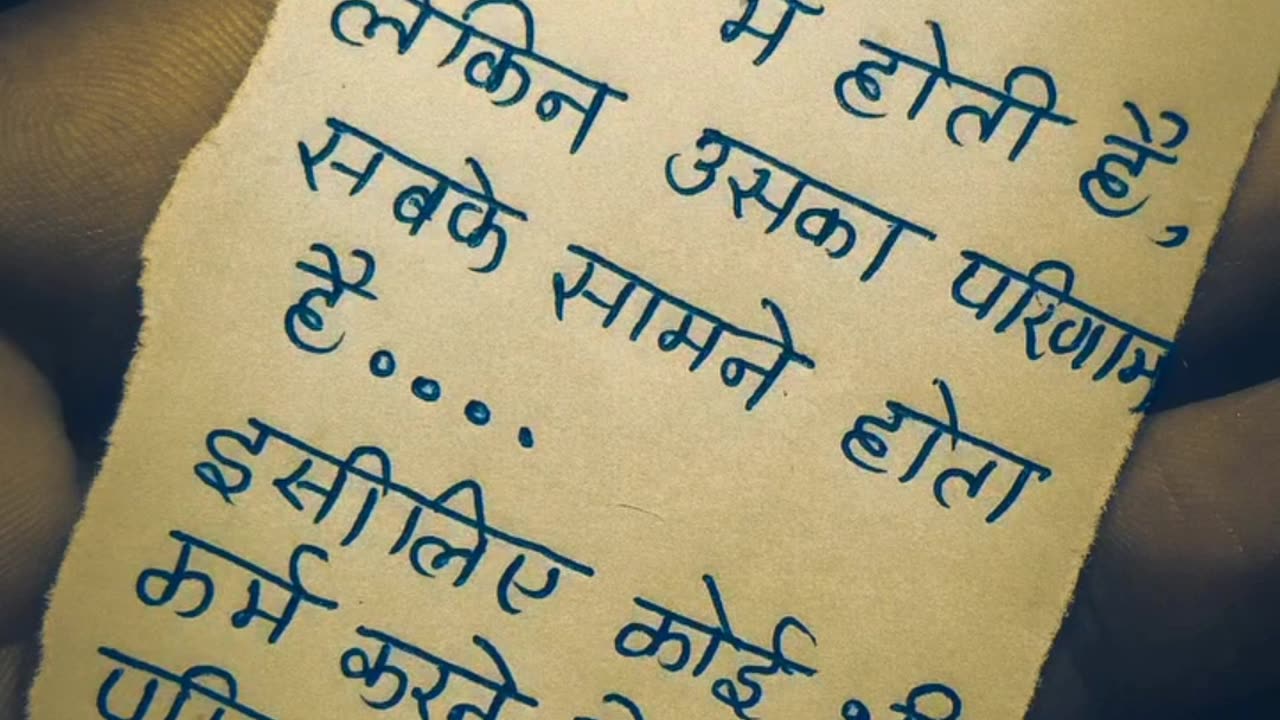 में होती है,
लेकिन उसका परिणाम
सबके सामने होता
है....
इसीलिए कोई भी
कर्म करते